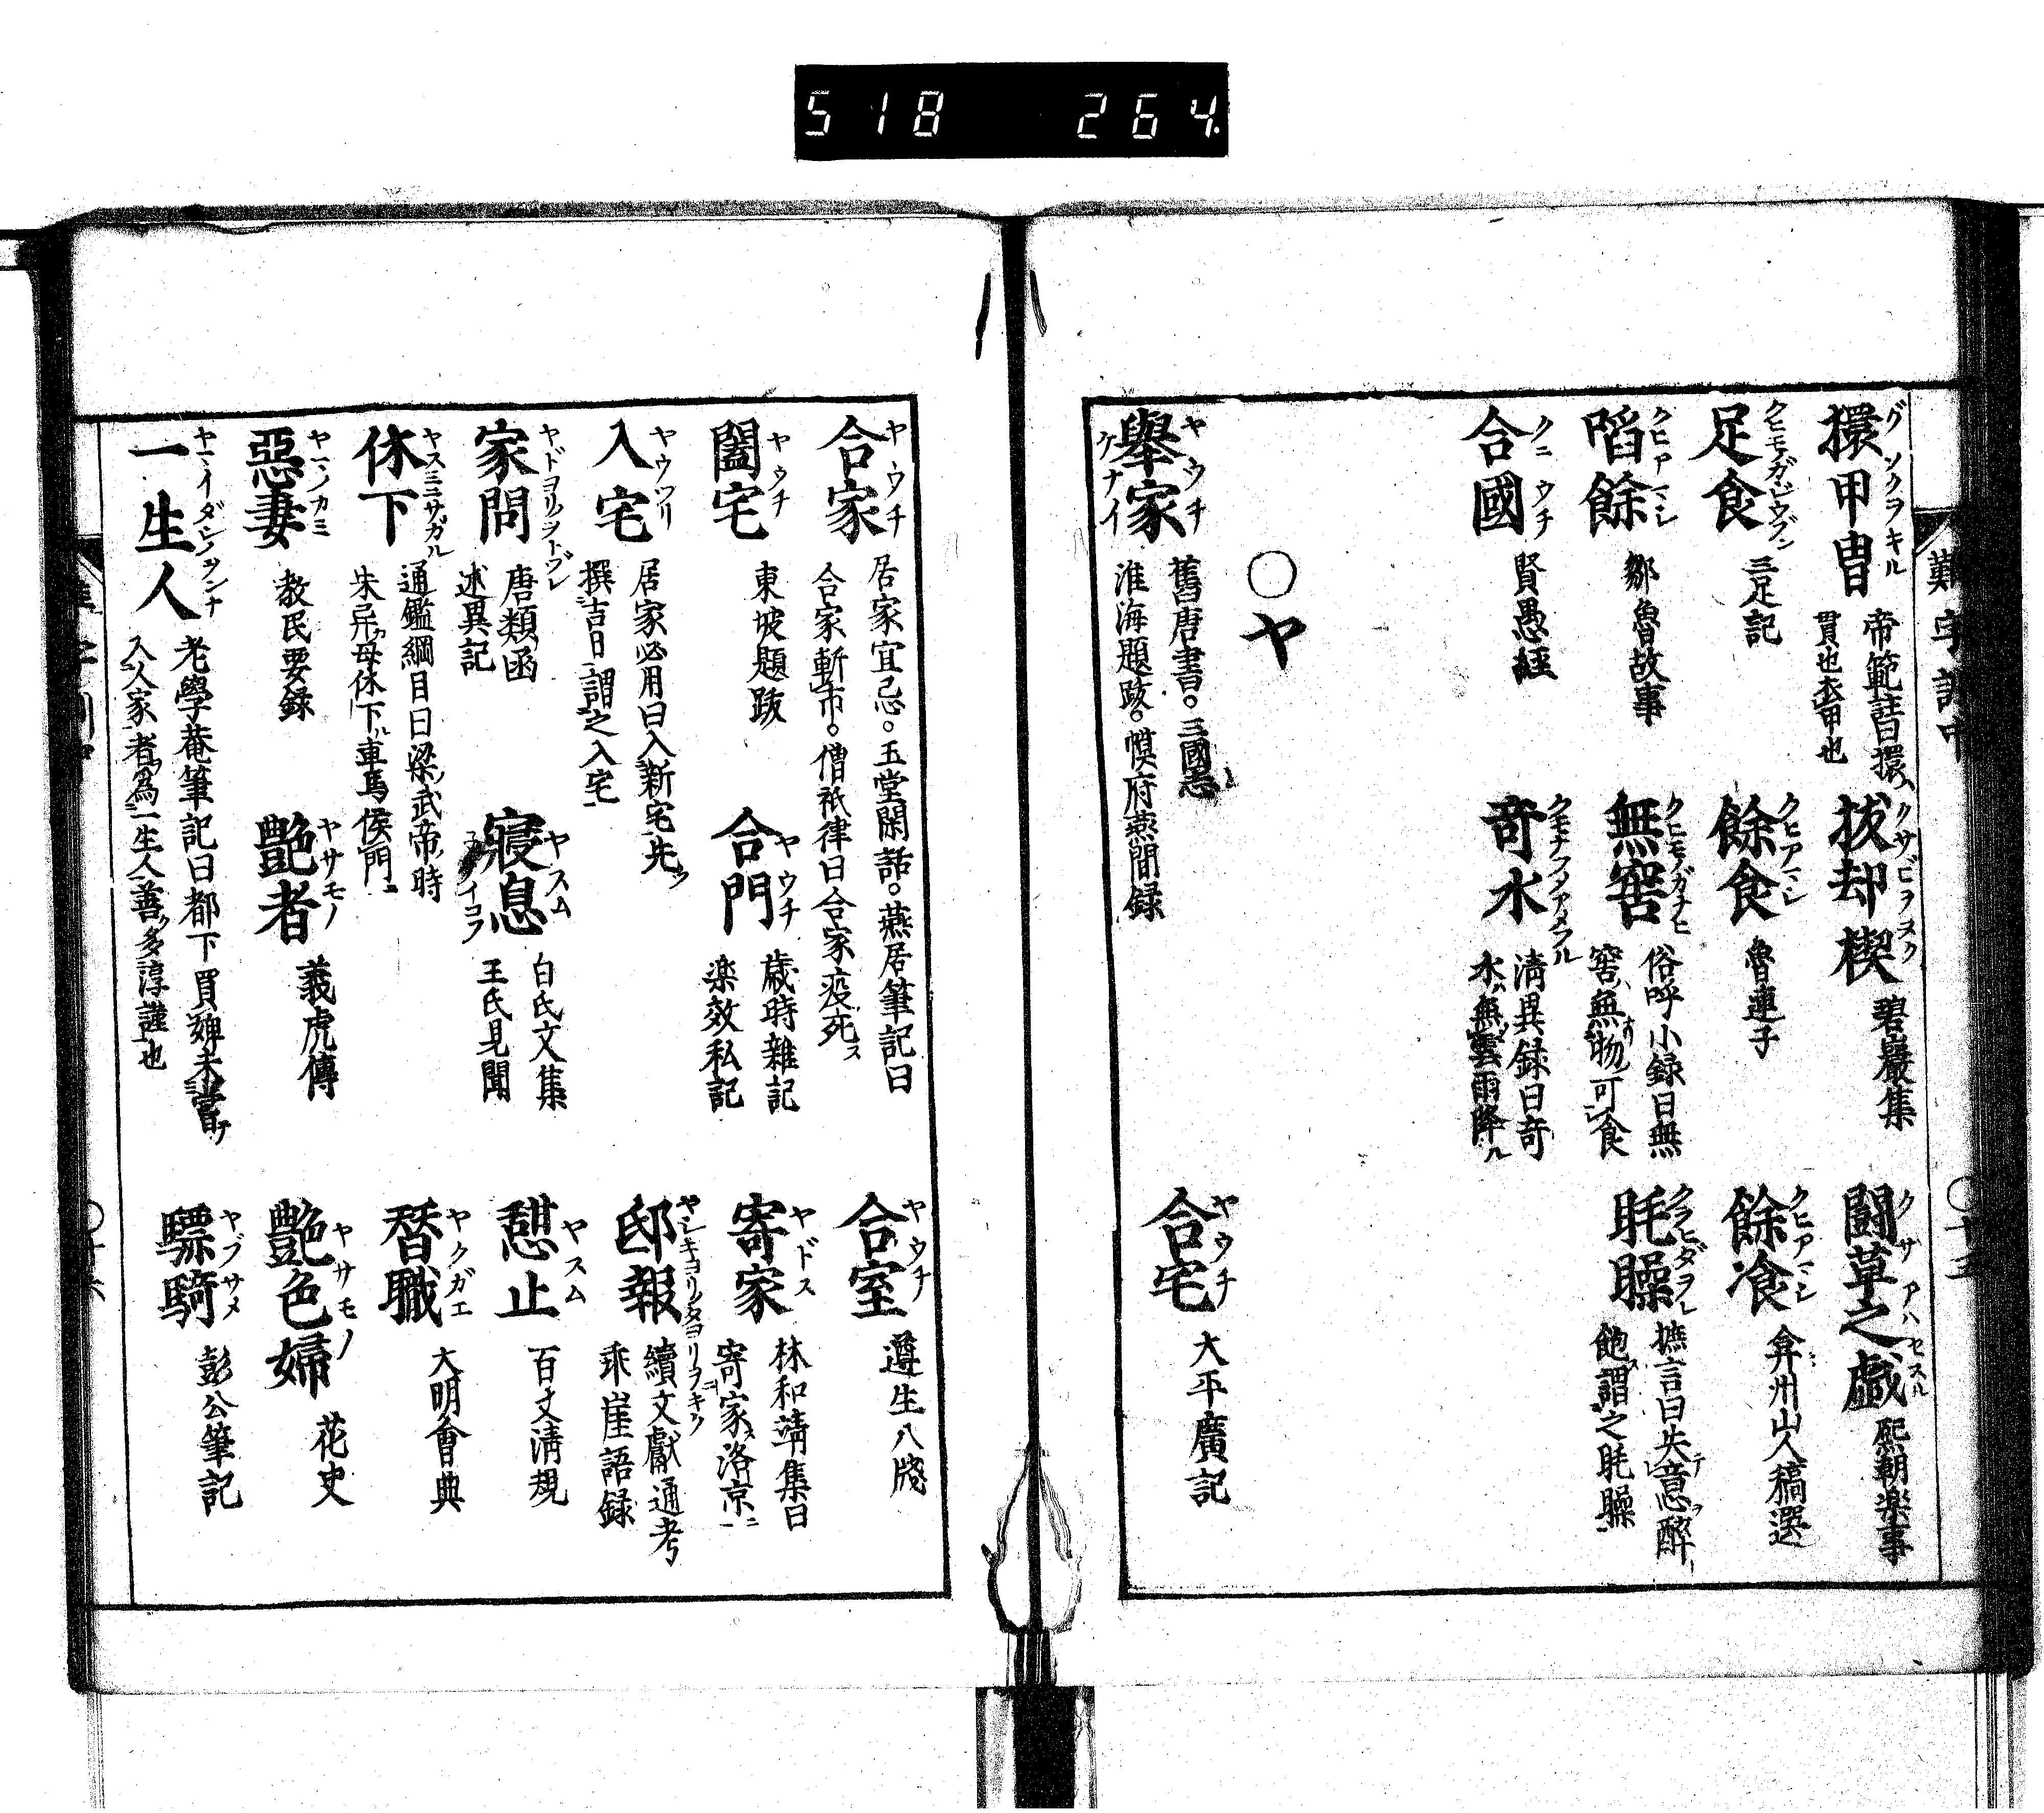 518 264
擐甲冑 グソクヲキル 帝範註曰擐ハ
貫也衣甲也
拔却楔 クサビヲヌク 碧巖集
鬪草之戯 クサアハセスル 熙朝楽事
足食 三足記
餘食 クヒアマシ 魯連子
餘飡 クヒアマシ 弇州山人稿選
啗餘 クヒアマシ 鄒魯故事
無窖 俗呼小録曰無
窖無物可食
眊矂 クラヒダヲレ 摭言曰失意醉
飽謂之眊矂
合國 クニウチ 賢愚経
奇水 清異録曰奇
水無雲雨降ル
○ヤ
舉家 ヤウチ ケナイ 舊唐書。三國志
淮海題跋。幙府燕間録
合宅 ヤウチ 大平廣記
合家 ヤウチ 居家宜忌。玉堂閑話。燕居筆記曰
合家斬市。僧祇律曰合家疫死ス
合室 ヤウチ 遵生八牋
闔宅 ヤウチ 東坡題跋
合門 ヤウチ 歳時雜記
楽效私記
寄家 ヤドス 林和靖集曰
寄家洛京
入宅 ヤウツリ 居家必用曰入新宅先ツ
撰吉日謂之入宅
邸報 續文獻通考
乖崖語録
家問 唐類函
述異記
寢息 ヤスム イコフ 白氏文集
王氏見聞
憇止 ヤスム 百丈清規
休下 ヤスミニサガル 通鑑綱目曰梁武帝時
朱异母休下車馬候門
替職 ヤクガエ 大明會典
惡妻 教民要録
艶者 ヤサモノ 義虎傳
艶色婦 ヤサモノ 花史
一生人 老學菴筆記曰都下買婢未嘗テ
入人家者為一生人善多淳謹也
驃騎 ヤブサメ 彭公筆記